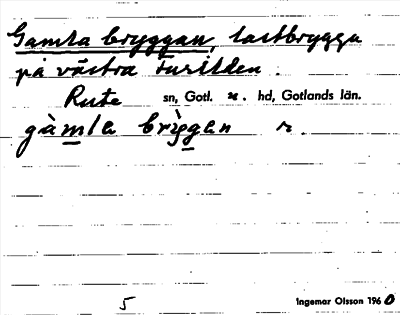 Gamla bryggan, lastbrygga
på västra Furilden.
Rute sn, Gotl. n. hd, Gotlands län.
gàmla brỳgan r.
5 Ingemar Olsson 1960